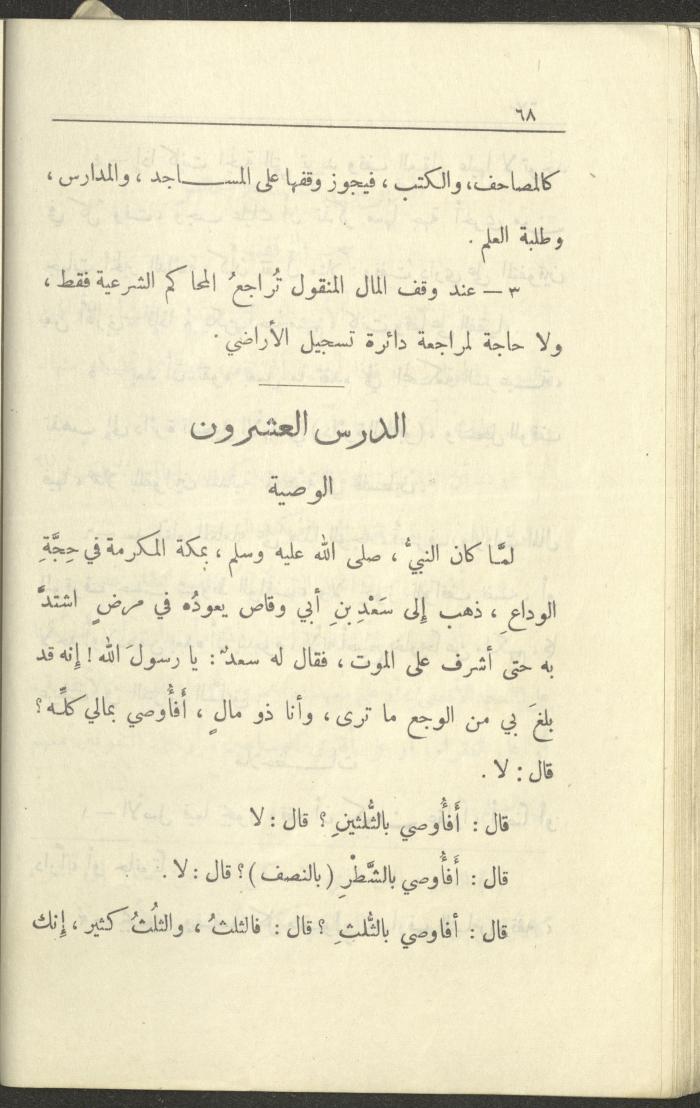 ٦٨
كالمصاحف، والكتب ، فيجوز وقفها على المســـاجد ، والمدارس ،
وطلبة العلم .
٣ — عند وقف المال المنقول تُراجعُ المحاكم الشرعية فقط ،
ولا حاجة لمراجعة دائرة تسجيل الأراضي .
الدرس العشرون
الوصية
لمَّا كان النبيُّ ، صلى الله عليه وسلم ، بمكة المكرمة في حِجَّةِ
الوداع ، ذهب إلى سَعْدِ بنِ أبي وقاص يعودُه في مرضٍ اشتدَّ
به حتى أشرف على الموت ، فقال له سعدٌ : يا رسولَ الله ! إنه قد
بلغَ بي من الوجع ما ترى ، وأنا ذو مالٍ ، أَفأُوصي بمالي كلِّه ؟
قال : لا .
قال : أَفأُوصي بالثُّلثينِ ؟ قال : لا
قال : أَفأُوصي بالشَّطْرِ ( بالنصف ) ؟ قال : لا .
قال : أفاوصي بالثُّلثِ ؟ قال : فالثلثُ ، والثلُثُ كثير ، إنك